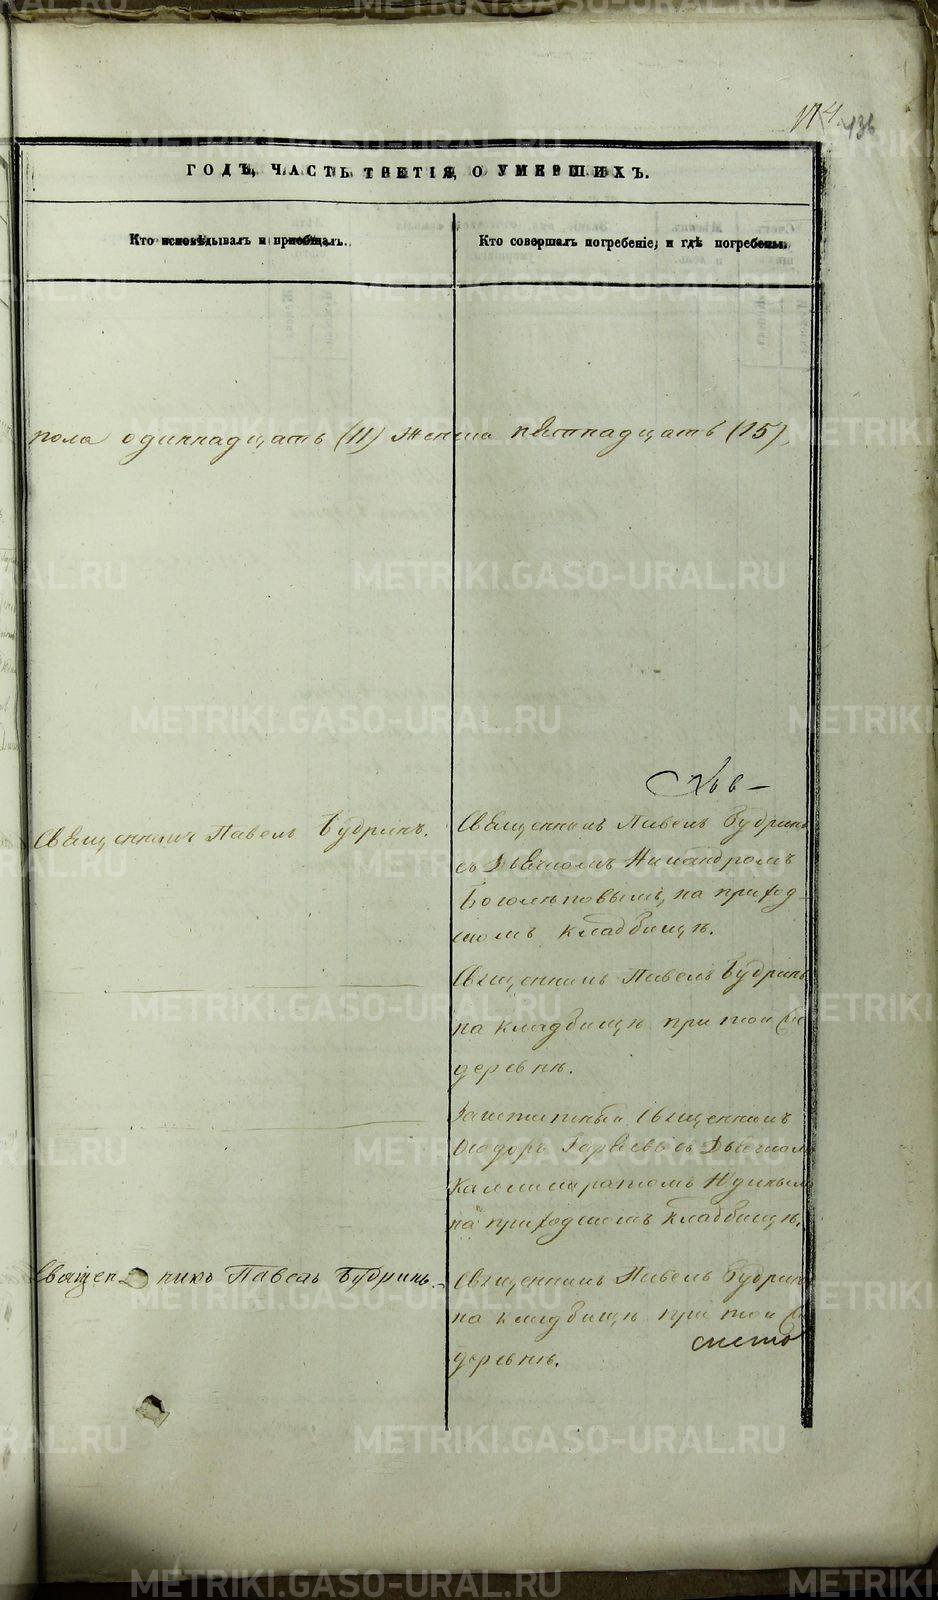 174.
436
ГОДЪ, ЧАСТЬ ТРЕТІЯ, О УМЕРШИХЪ.
Кто исповѣдывалъ и пріобщалъ.
Кто совершалъ погребеніе, и гдѣ погребены.
пола одиннадцать (11) женска пятнадцать (15)
Священникъ Павелъ Будринъ.
Священникъ Павелъ Будринъ
съ Дьячкомъ Никандромъ
Боголѣповымъ, на приход-
скомъ кладбищѣ.
Священникъ Павелъ Будринъ
на кладбищѣ при той
деревнѣ.
Заштатный Священникъ
Ѳеодоръ съ Дьячкомъ
Каллистратомъ Юдинымъ
на приходскомъ кладбищѣ.
Священникъ Павелъ Будринъ.
Священникъ Павелъ Будринъ
на кладбищѣ при той
деревнѣ.
METRIKI.GASO-URAL.RU